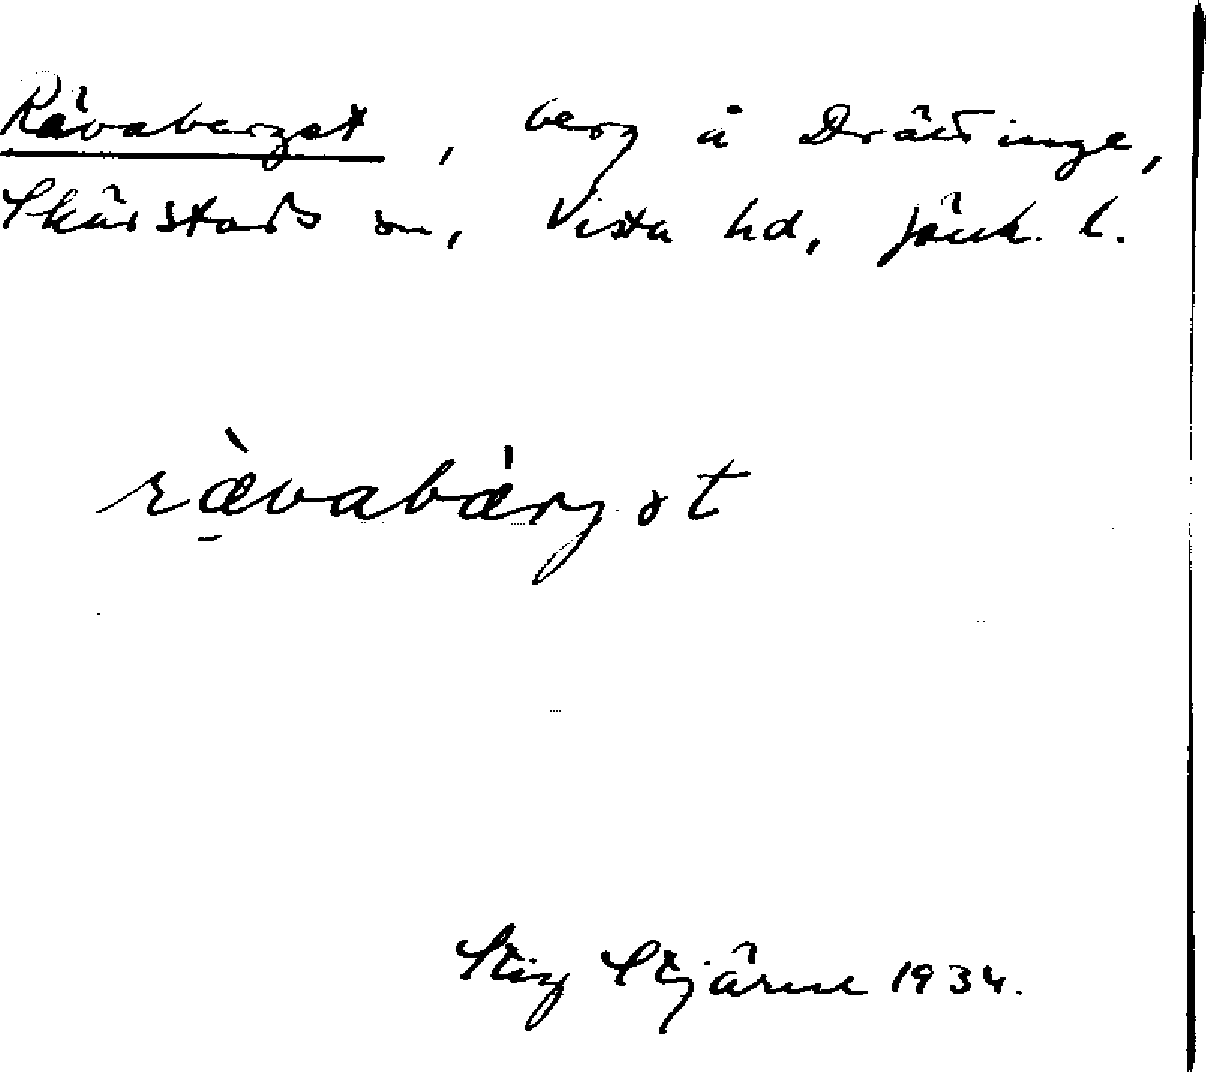 Rävaberget, berg å Drättinge,
Skärstads sn, Vista hd, Jönk. l.
rævabærgət
Stig Stjärne 1934.